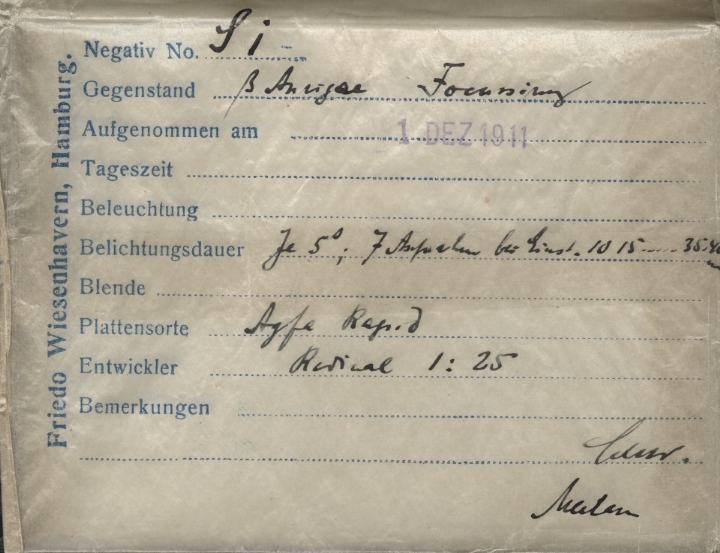 Friedo Wiesenhavern, Hamburg.
Negativ No. S i
Gegenstand β Aurigae Focussirung
Aufgenommen am 1 DEZ 1911
Tageszeit
Beleuchtung
Belichtungsdauer Je 5ˢ; 7 Aufnahmen bei Einst. 10 15 35 40
Blende
Plattensorte Agfa Rapid
Entwickler Rodinal 1: 25
Bemerkungen